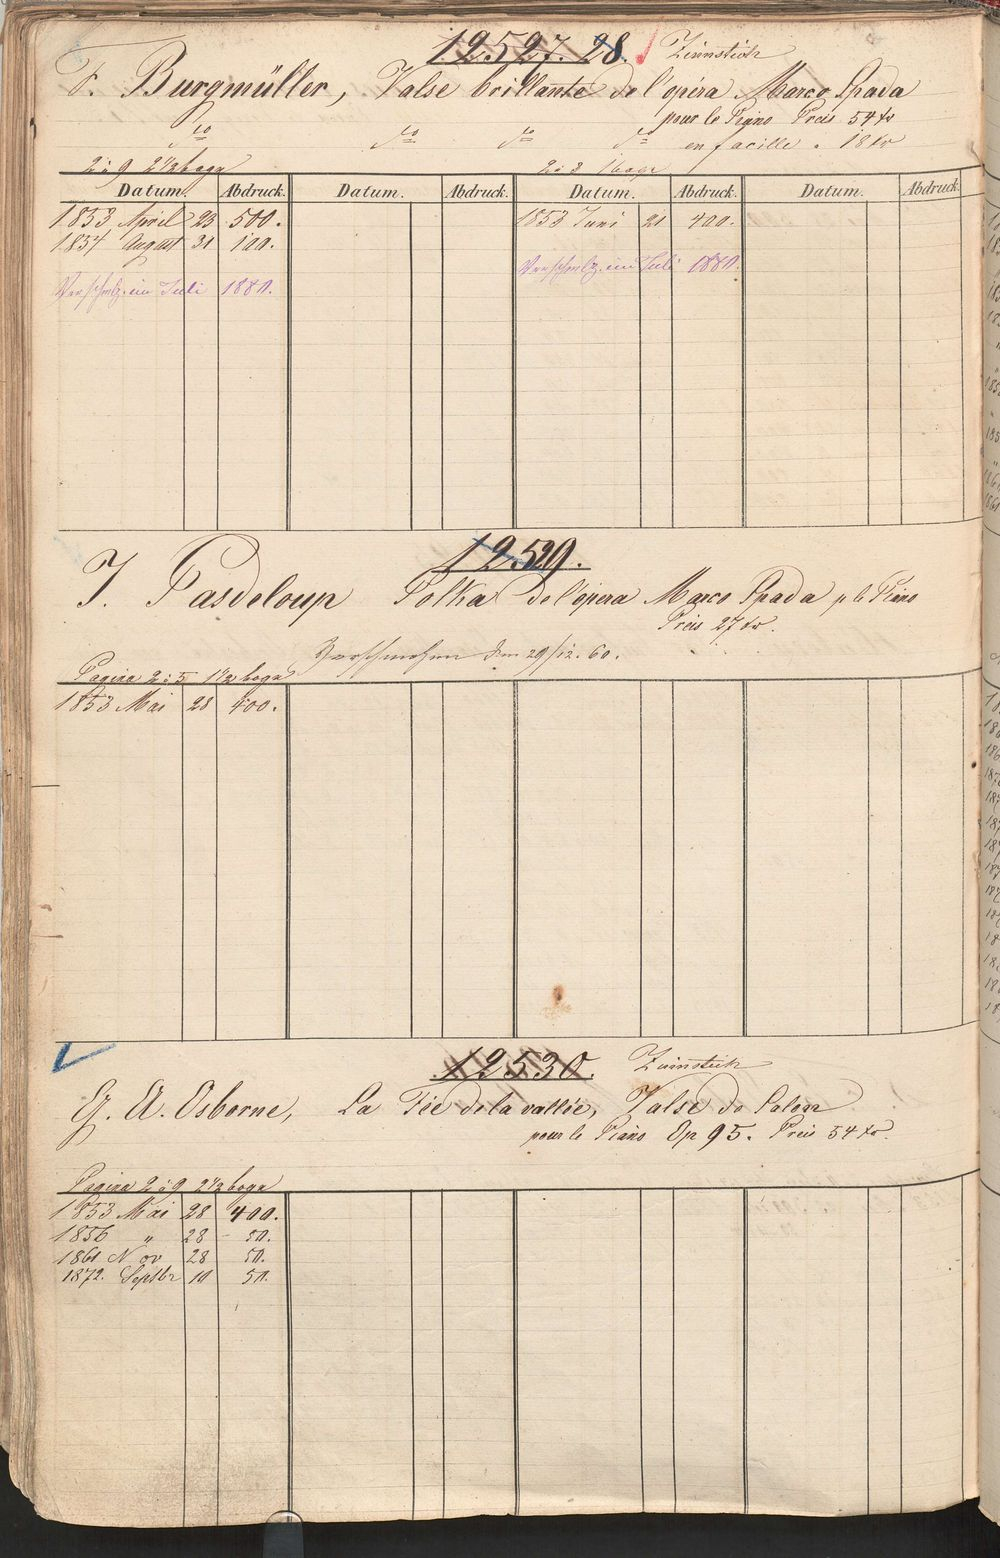 12527. 28. Zinnstich
F. Burgmüller, Valse brillante de l'opéra Marco Spada
pour le Piano Preis 54 kr
do do do do en facille " 18 kr
2 à 9 2 1/2 boga 2 à 3 1 boga
Datum. Abdruck. Datum. Abdruck. Datum. Abdruck. Datum. Abdruck.
1853 April 23 500. 1853 Juni 21 400.
1857 August 31 100.
Verschmelz. im Juli 1880.
Verschmelz. im Juli 1880.
12529.
J. Pasdeloup Polka de l'opera Marco Spada p le Piano
Preis 27 kr.
den 29/12. 60.
Pagina 2 à 5 1 1/2 boga
1853 Mai 28 400.
12530. Zinnstich
G. A. Osborne, La Fée de la vallée, Valse de Salon
pour le Piano Op 95. Preis 54 kr.
Pagina 2 à 9 2 1/2 boga
1853 Mai 28 400.
1856 " 28 50.
1861 Nov 28 50.
1872. Septbr 10 50.